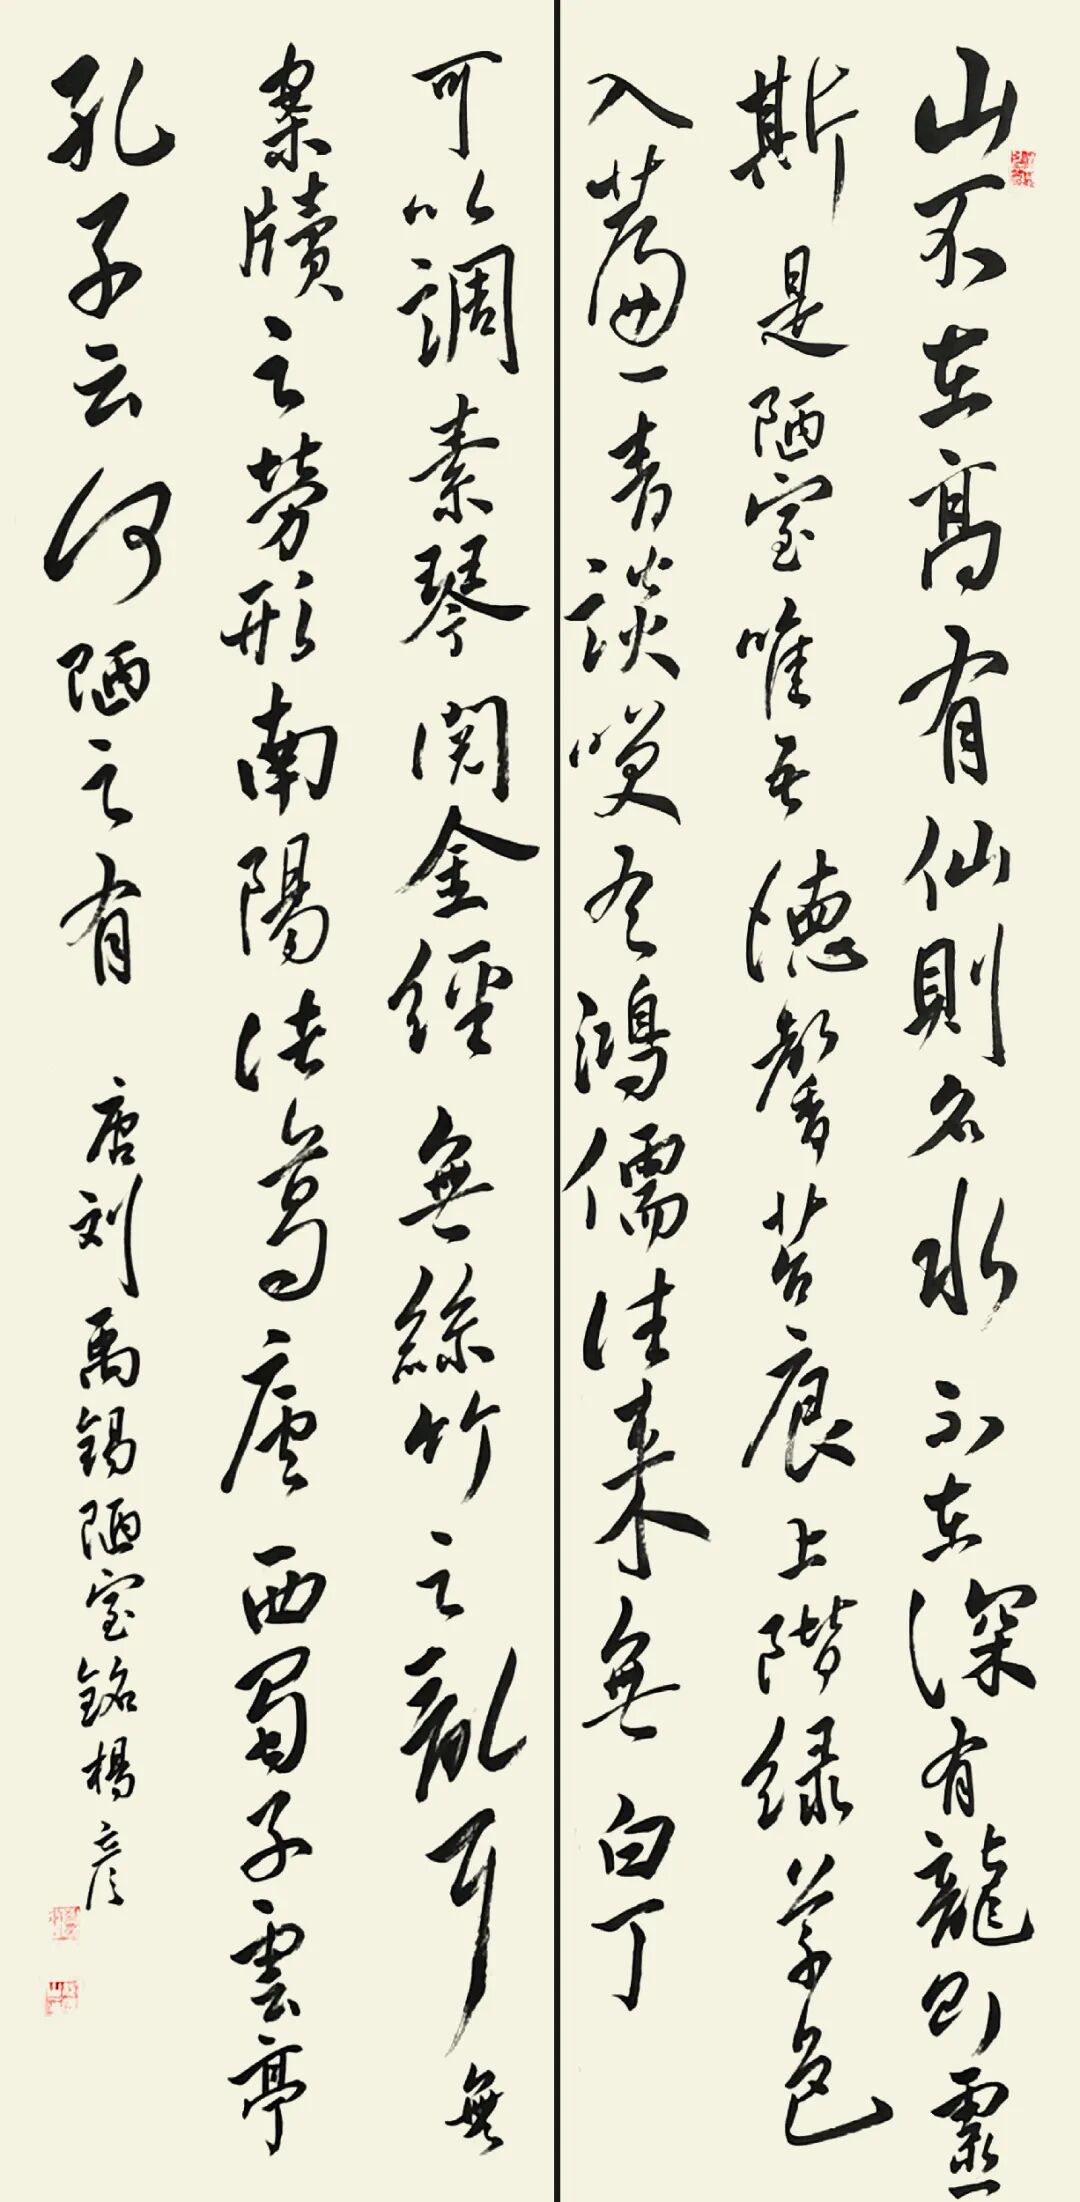 山不在高有仙則名水不在深有龍則靈
斯是陋室唯吾德馨苔痕上階绿草色
入簾青談笑有鴻儒往来無白丁
可以調素琴閱金經無絲竹之亂耳無
案牘之勞形南陽诸葛廬西蜀子雲亭
孔子云何陋之有
唐刘禹錫陋室銘楊彦